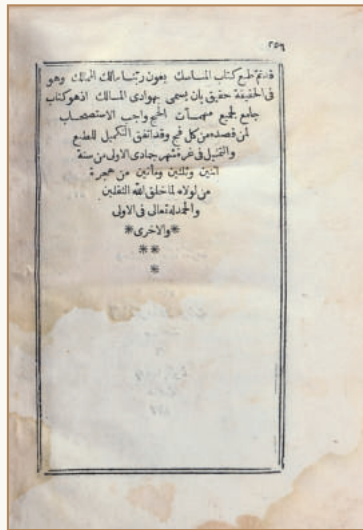 ٢٥٦
قد تم طبع كتاب المناسك بعون ربنا مالك الممالك وهو
فى الحقيقة حقيق بان يسمى بهوادى المسالك اذ هو كتاب
جامع لجميع مهمات الحج واجب الاستصحاب
لمن قصده من كل فج وقد اتفق التكميل للطبع
والتمثيل فى غرة شهر جمادى الاولى من سنة
اثنين وثلثين ومأتين من هجرة
من لولاه لما خلق الله الثقلين
والحمد لله تعالى فى الاولى
*والاخرى*
**
*